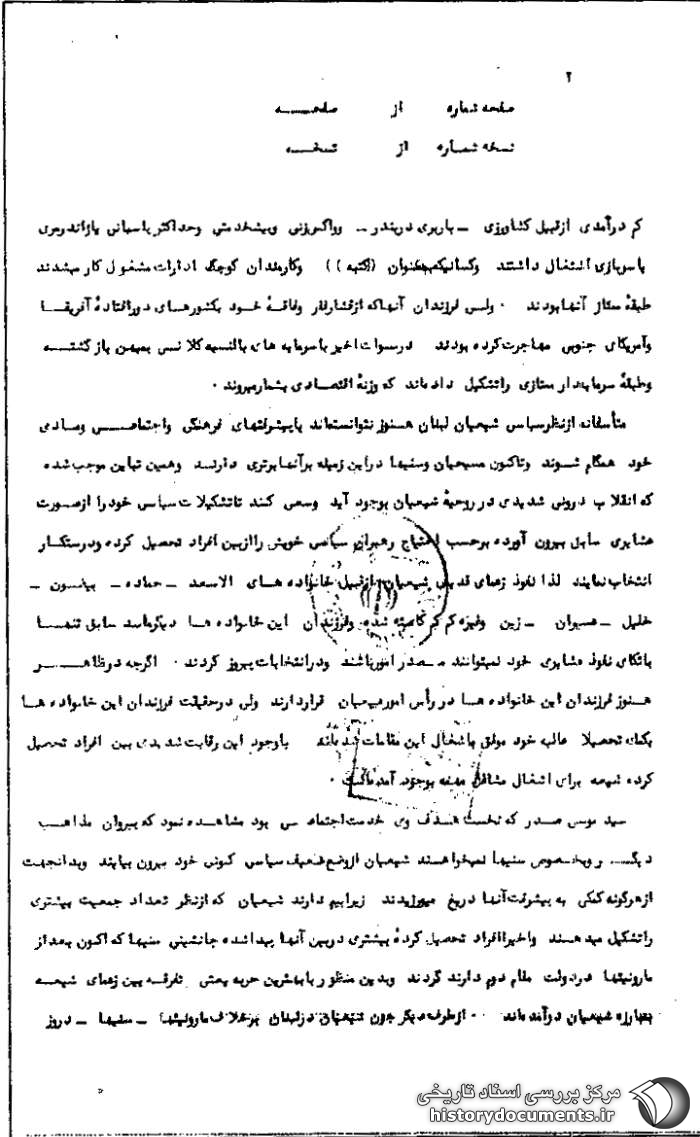 ۲
صفحه شماره از صفحــــه
نسخه شماره از نسخــه
کم درآمدی ازقبیل کشاورزی - باربری دربندر - وواکس‌زنی وپیشخدمتی وحداکثر پاسبانی یاژاندرمری
یا سربازی اشتغال داشتند وکسانیکه‌بعنوان ((کتبه)) وکارمندان کوچک ادارات مشغول کار میشدند
طبقهٔ ممتاز آنهابودند ۰ ولیس فرزندان آنهاکه ازفشارفقر وفاقهٔ خود بکشورهـای دورافتادهٔ آفریقـا
وآمریکای جنوبی مهاجرت‌کرده بودند درسنوات اخیر باسرمایه های بالنسبه کلا نسی بمیهن بازگشتـه
وطبقهٔ سرمایه‌دار ممتازی راتشکیل داده‌اند که وزنهٔ اقتصادی بشمارمیروند ۰
متأسفانه ازنظرسیاسی شیعیان لبنان هنـوز نتوانسته‌اند باپیشرفتهای فرهنگی واجتماعـی ومـادی
خود همگام شـوند وتاکنون مسیحیان وسنیها دراین زمینه برآنهابرتری دارنـد وهمین تباین موجب شده
که انقلا ب درونی شدیدی در روحیهٔ شیعیان بوجود آید وسعی کنند تاتشکیلا ت سیاسی خودرا ازصـورت
عشایری سابق بیرون آورده برحسب احتیاج رهبران سیاسی خویش راازبین افراد تحصیل کرده ودرستکـار
انتخاب نمایند لذا نفوذ زعمای قدیمی شیعیان ازقبیل خانواده هـای الاسعد - حماده - بیضـون -
خلیل - عسیران - زین وغیره کم کم کاسته شده وفرزندان این خانواده هـا دیگرمانند سابق تنهـا
باتکای نفوذ عشایری خود نمیتوانند مـصدر امورباشند ودرانتخابات پیروز گردند ۰ اگرچه درظاهـر
هـنوز فرزندان این خانواده هـا در رأس امورشیعیان قراردارند ولی درحقیقت فرزندان این خانواده هـا
بکمک تحصیلا عالیه خود موفق باشغال این مقامات شده‌اند باوجود این رقابت شدیدی بین افراد تحصیل
کرده شیعه برای اشغال مشاغل مهمه بوجود آمده‌است ۰
سید موسی صدر که نخست هـدف وی خدمت اجتماعـی بود مشاهـده نمود که پیروان مذاهـب
دیگـر وبخصوص سنیها نمیخواهـند شیعیان ازوضع ضعیف سیاسی کنونی خود بیرون بیایند وبدانجهت
ازهرگونه کمکی به پیشرفت آنها دریغ میورزیدند زیرابیم دارند شیعیان که ازنظر تعداد جمعیت بیشتری
راتشکیل میدهـند واخیراافراد تحصیل کردهٔ بیشتری دربین آنهـا پیداشده جانشینی سنیها که اکنون بعداز
مارونیتها دردولت مقام دوم دارند گردند وبدین منظور بابهترین حربه یعنی تفرقـه بین زعمای شیعـه
بمبارزه شیعیان درآمده‌اند ۰ ازطرف دیگر چون شیعیان درلبنان برخلاف مارونیتها - سنیهـا - دروز
مرکز بررسی اسناد تاریخی
historydocuments.ir